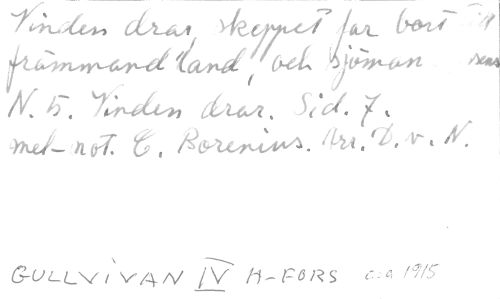 Vinden drar, skeppet far bort till
främmand land, och sjöman
N. 5. Vinden drar. Sid. 7.
mel-not. C. Borenius. Arr. D. v. N.
GULLVIVAN IV H-FORS c:a 1915